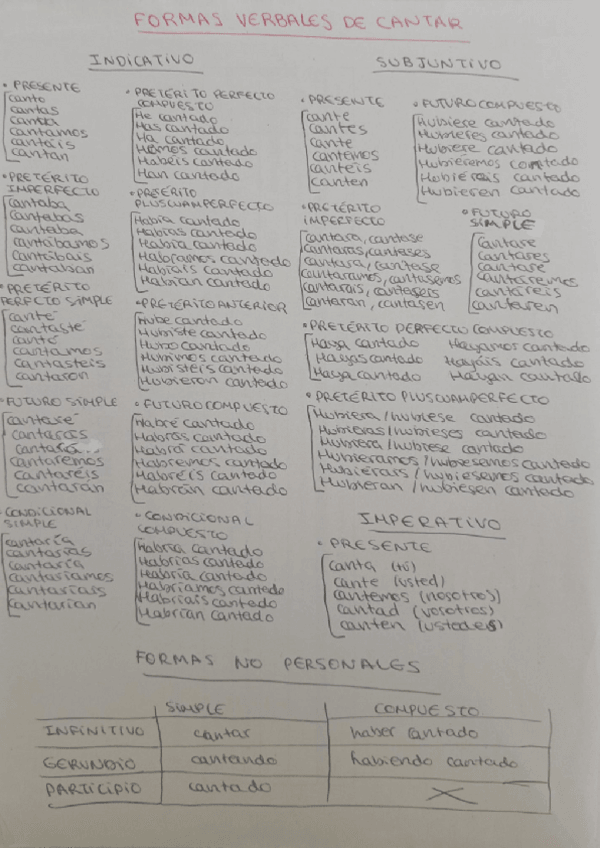 FORMAS VERBALES DE CANTAR
INDICATIVO
• PRESENTE
canto
cantas
canta
cantamos
cantáis
cantan
• PRETÉRITO PERFECTO
COMPUESTO
He cantado
Has cantado
Ha cantado
Hemos cantado
Habéis cantado
Han cantado
• PRETÉRITO
IMPERFECTO
cantaba
cantabas
cantaba
cantábamos
cantabais
cantaban
• PRETÉRITO
PLUSCUAMPERFECTO
Había cantado
Habías cantado
Había cantado
Habíamos cantado
Habíais cantado
Habían cantado
• PRETÉRITO
PERFECTO SIMPLE
canté
cantaste
cantó
cantamos
cantasteis
cantaron
• PRETÉRITO ANTERIOR
Hube cantado
Hubiste cantado
Hubo cantado
Hubimos cantado
Hubisteis cantado
Hubieron cantado
• FUTURO SIMPLE
cantaré
cantarás
cantará
cantaremos
cantaréis
cantarán
• FUTURO COMPUESTO
Habré cantado
Habrás cantado
Habrá cantado
Habremos cantado
Habréis cantado
Habrán cantado
• CONDICIONAL
SIMPLE
cantaría
cantarías
cantaría
cantaríamos
cantaríais
cantarían
• CONDICIONAL
COMPUESTO
Habría cantado
Habrías cantado
Habría cantado
Habríamos cantado
Habríais cantado
Habrían cantado
SUBJUNTIVO
• PRESENTE
cante
cantes
cante
cantemos
cantéis
canten
• FUTURO COMPUESTO
Hubiere cantado
Hubieres cantado
Hubiere cantado
Hubiéremos cantado
Hubiéreis cantado
Hubieren cantado
• PRETÉRITO
IMPERFECTO
cantara, cantase
cantaras, cantases
cantara, cantase
cantáramos, cantásemos
cantarais, cantaseis
cantaran, cantasen
• FUTURO
SIMPLE
cantare
cantares
cantare
cantáremos
cantareis
cantaren
• PRETÉRITO PERFECTO COMPUESTO
Haya cantado Hayamos cantado
Hayas cantado Hayáis cantado
Haya cantado Hayan cantado
• PRETÉRITO PLUSCUAMPERFECTO
Hubiera/hubiese cantado
Hubieras/hubieses cantado
Hubiera/hubiese cantado
Hubiéramos/hubiésemos cantado
Hubierais/hubieseis cantado
Hubieran/hubiesen cantado
IMPERATIVO
• PRESENTE
canta (tú)
cante (usted)
cantemos (nosotros)
cantad (vosotros)
canten (ustedes)
FORMAS NO PERSONALES
SIMPLE COMPUESTO
INFINITIVO cantar haber cantado
GERUNDIO cantando habiendo cantado
PARTICIPIO cantado